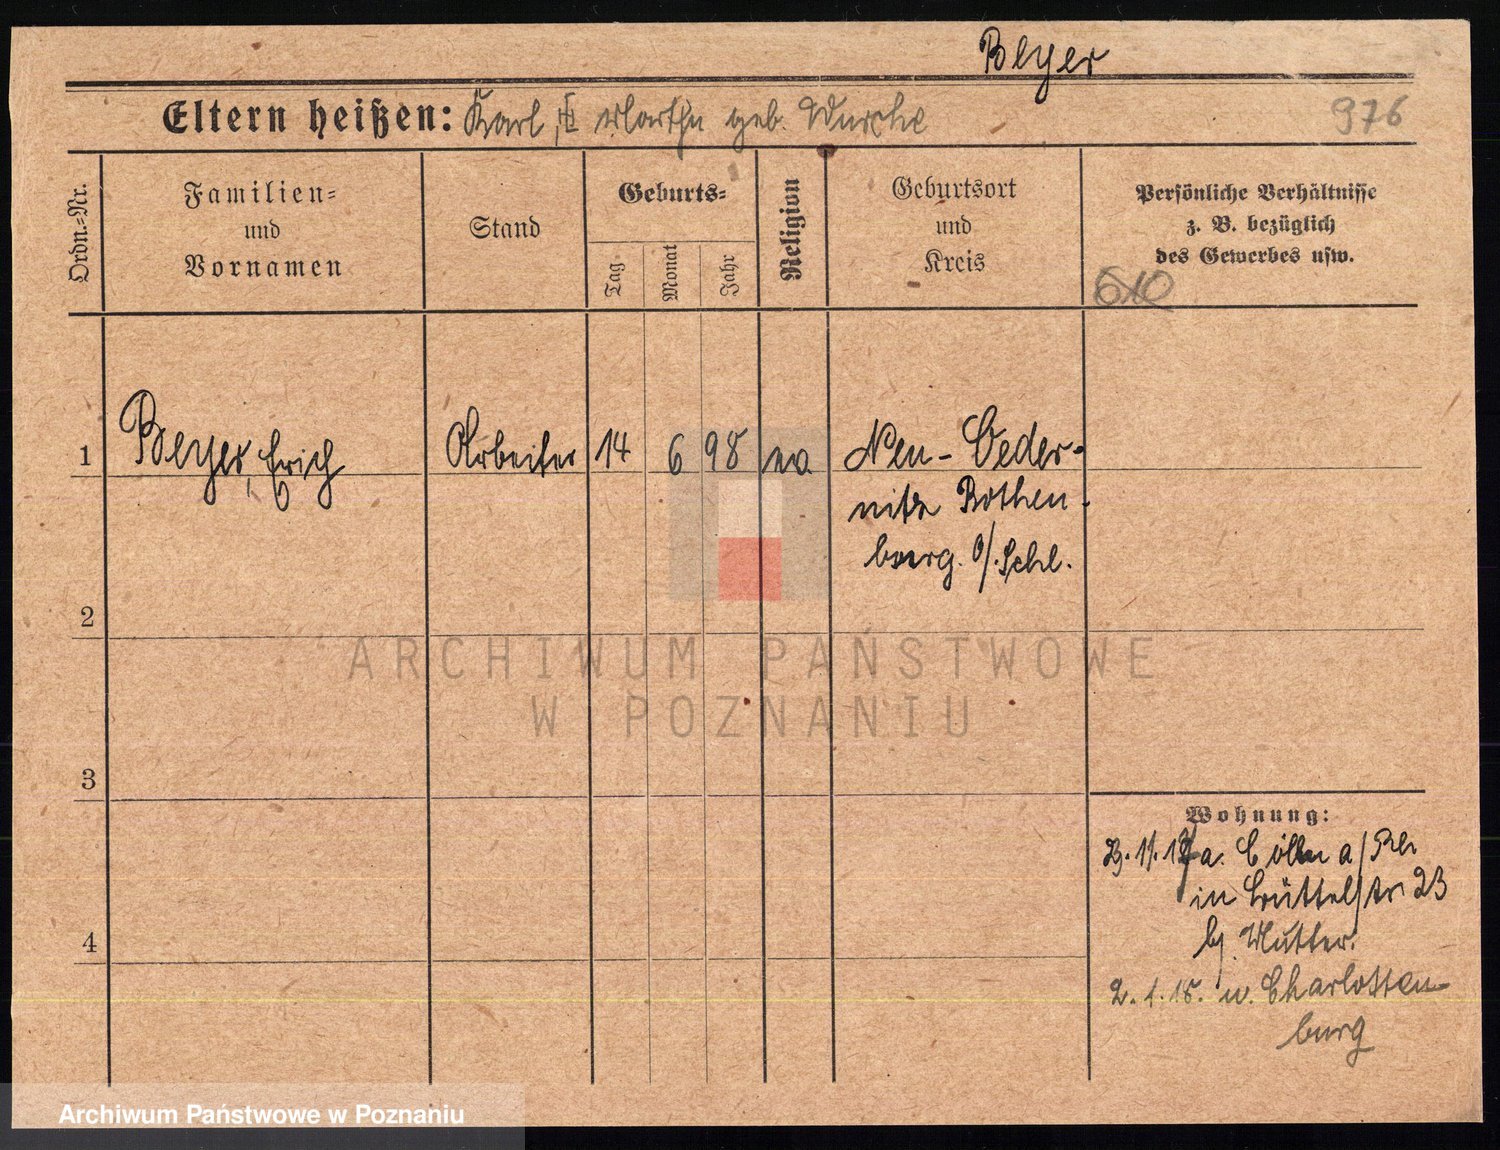 Beyer
Eltern heißen: Karl, u Martha geb. Wursche
976
Ordn.-Nr.
Familien-
und
Vornamen
Stand
Geburts-
Tag
Monat
Jahr
Religion
Geburtsort
und
Kreis
Persönliche Verhältnisse
z. B. bezüglich
des Gewerbes usw.
610
1
Beyer, Erich
Arbeiter
14
6
98
ev
Neu-Oeder-
nitz Rothen-
burg. O/Schl.
2
3
4
Wohnung:
a. Cölln a/Rh
in Büttelstr 23
bj. Mutter.
2.1.18. n. Charlotten
burg
ARCHIWUM PAŃSTWOWE
W POZNANIU
Archiwum Państwowe w Poznaniu